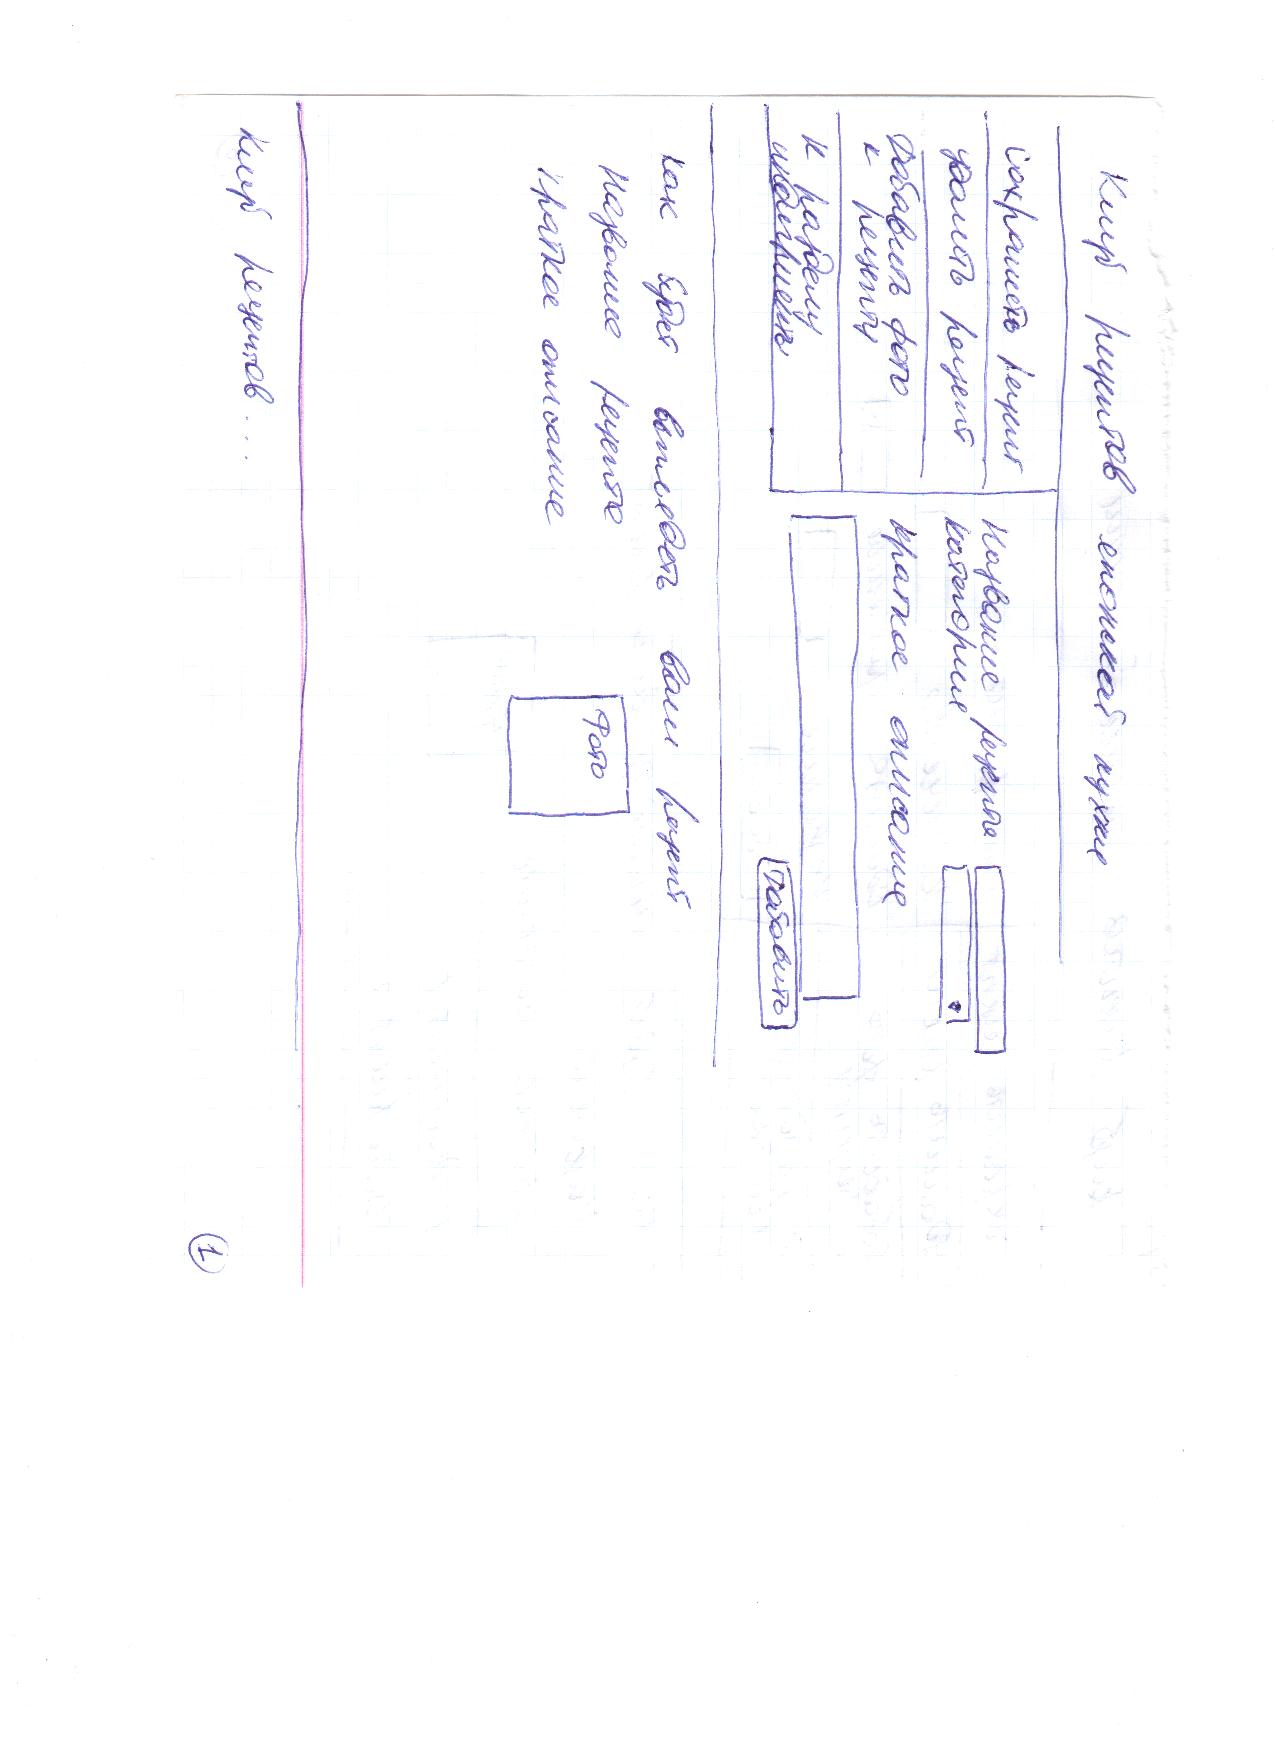 Клуб рецептов японской кухне
Сохранить рецепт
Удалить рецепт
Добавить фото
к рецепту
К разделу
Название рецепта
категория
Краткое описание
Добавить
Как будет выглядеть ваш рецепт
Название рецепта
Краткое описание
Фото
Клуб рецептов...
1